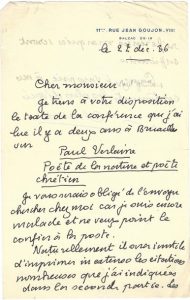 11bis, RUE JEAN GOUJON, VIIIe
BALZAC
le 27 déc. 36
Cher monsieur
Je tiens à votre disposition
le texte de la conférence que j'ai
lue il y a deux ans à Bruxelles
sur
Paul Verlaine
Poète de la nature et poète
chrétien
Je vous serais obligé de l'envoyer
chercher chez moi car je suis encore
malade et ne veux point le
confier à la poste.
Naturellement il serait inutile
d'imprimer in extenso les citations
nombreuses que j'ai indiquées
dans la seconde partie. Les